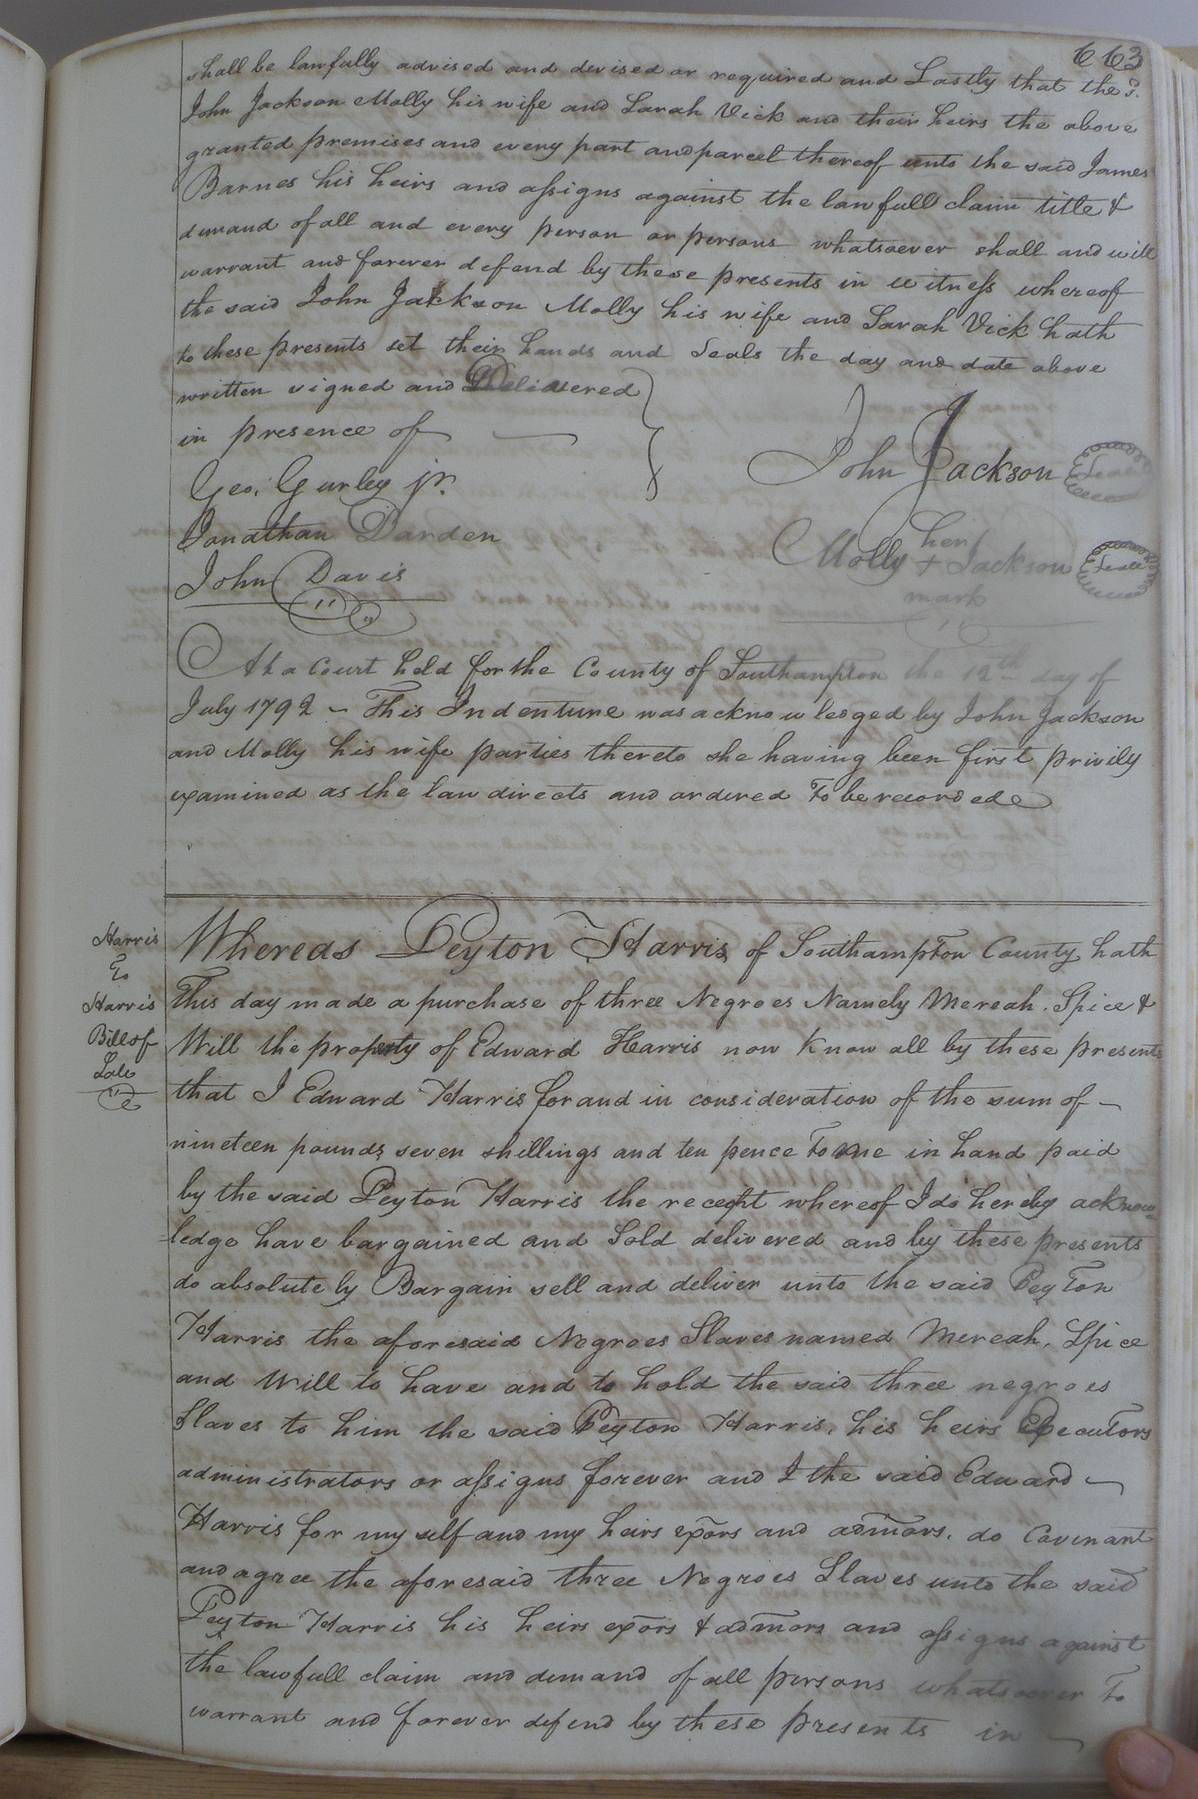 663
shall be lawfully advised and devised or required and Lastly that the sd.
John Jackson Molly his wife and Sarah Vick and their heirs the above
granted premises and every part and parcel thereof unto the said James
Barnes his heirs and assigns against the lawfull claim title &
demand of all and every person or persons whatsoever shall and will
warrant and forever defend by these presents in witness whereof
the said John Jackson Molly his wife and Sarah Vick hath
to these presents set their hands and Seals the day and date above
written signed and Delivered
in presence of
Geo. Gurley jr.
John Jackson Seal
Jonathan Darden
her
Molly + Jackson Seal
mark
John Davis
At a Court held for the County of Southampton the 12th day of
July 1792 - This Indenture was acknowledged by John Jackson
and Molly his wife parties thereto she having been first privily
examined as the law directs and ordered to be recorded
Harris
To
Harris
Bill of
Sale
Whereas Peyton Harris of Southampton County hath
This day made a purchase of three Negroes Namely Mereah. Spice &
Will the property of Edward Harris now Know all by these presents
that I Edward Harris for and in consideration of the sum of -
nineteen pounds seven shillings and ten pence to me in hand paid
by the said Peyton Harris the receipt whereof I do hereby acknow-
ledge have bargained and Sold delivered and by these presents
do absolutely Bargain sell and deliver unto the said Peyton
Harris the aforesaid Negroes Slaves named Mereah. Spice
and Will to have and to hold the said three negroes
Slaves to him the said Peyton Harris, his heirs Executors
administrators or assigns forever and I the said Edward -
Harris for my self and my heirs exors and admors. do Covenant
and agree the aforesaid three Negroes Slaves unto the said
Peyton Harris his heirs exors & admors and assigns against
the lawfull claim and demand of all persons whatsoever To
warrant and forever defend by these presents in -